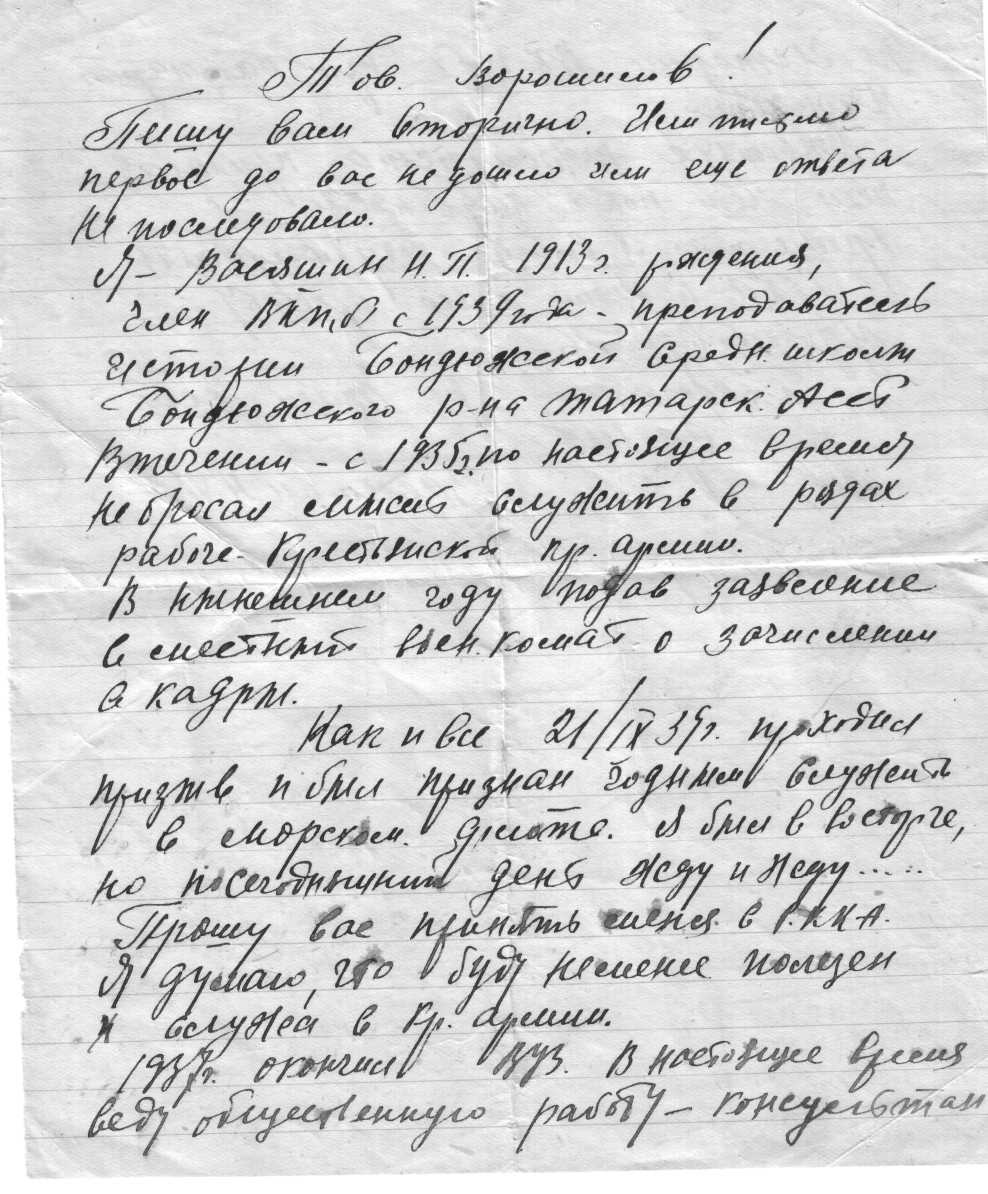 Тов. Ворошилов!
Пишу вам вторично. Или письмо
первое до вас не дошло или еще ответа
не последовало.
Я – Васяшин Н. П. 1913 г. рждения,
член ВКП,б с 1939 года – преподаватель
истории Бондюжской средн. школы
Бондюжского р-на Татарск. АССР
Втечении – с 1935г. по настоящее время
не бросал мысль служить в рядах
рабоче-Крестьянской кр. армии.
В нынешнем году подав заявление
в местный воен.комат о зачислении
в кадры.
Как и все 21/IX 39г. проходил
призыв и был признан годным служить
в морском флоте. Я был в восторге,
но посегодняшний день жду и жду.....
Прошу вас принять меня в РККА.
Я думаю, что буду неменее полезен
и служа в Кр. армии.
1937г. окончил ВУЗ. В настоящее время
веду общественную работу – консультан